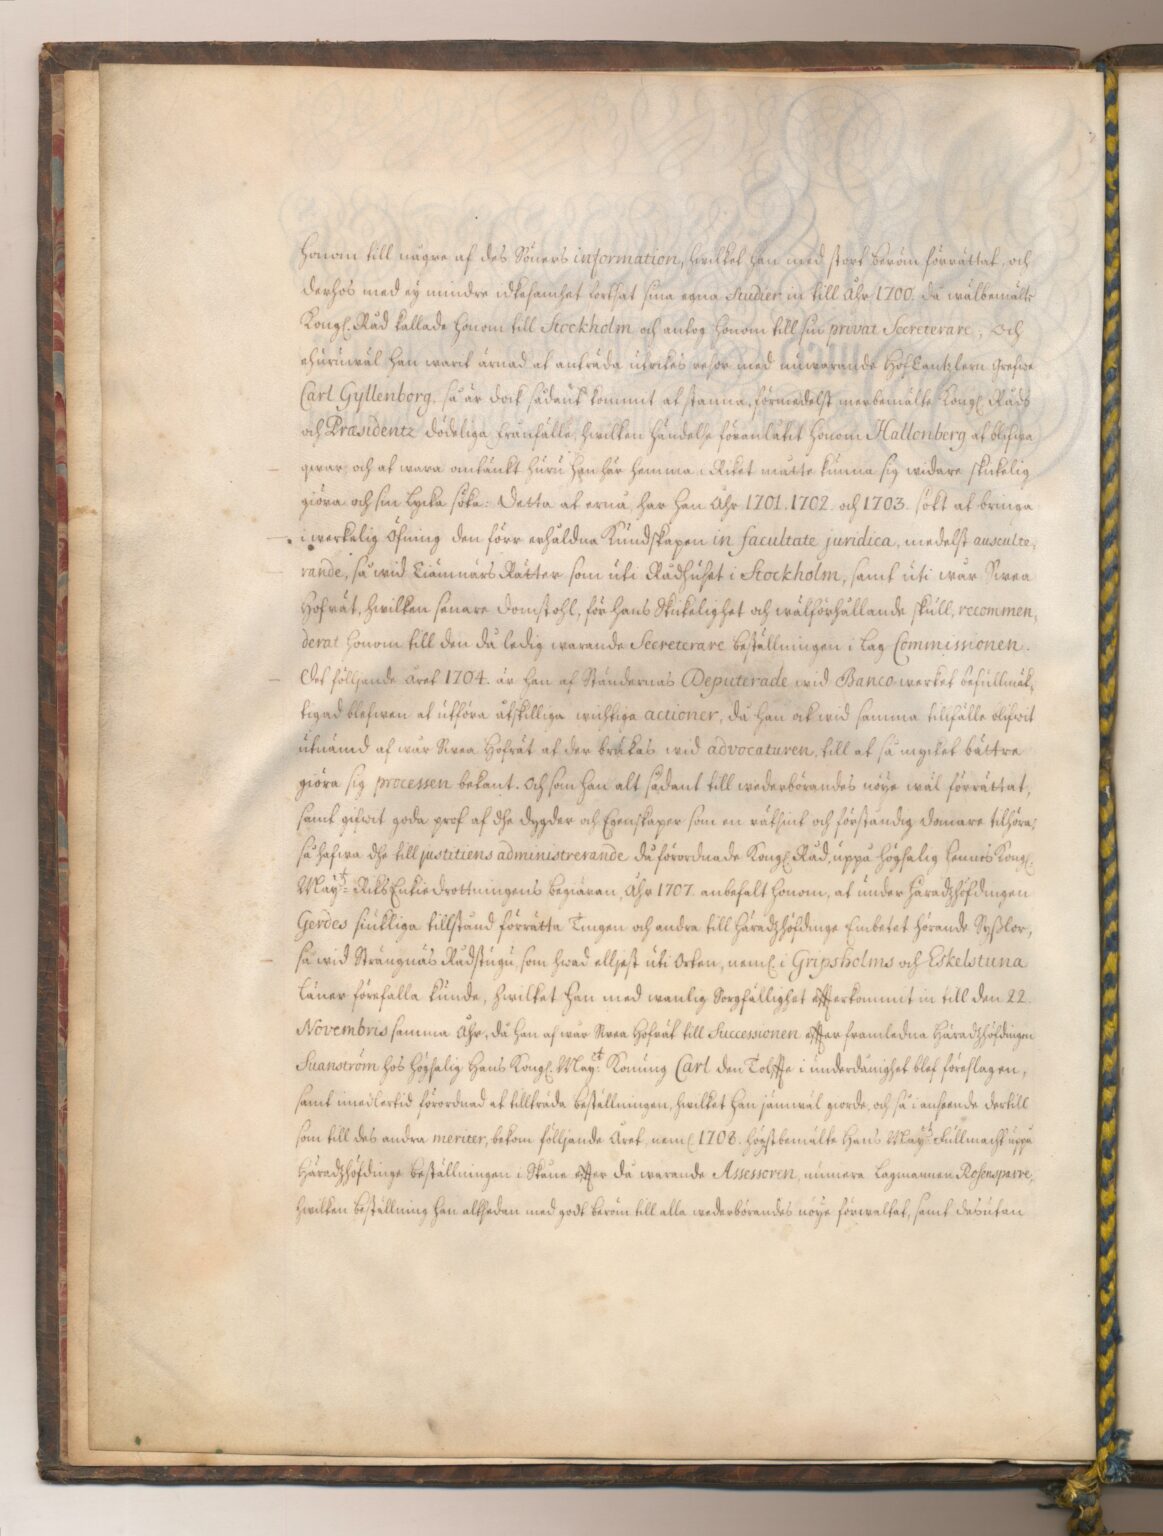 honom till någre af des Söners information, hwilket han med stort beröm förrättat, och
derhos med ey mindre idkesamhet fortsat sina egna Studier in till åhr 1700. då wälbemälte
Kongl. Råd kallade honom till Stockholm och antog honom till sin privat Secreterare, och
ehuruwäl han warit ärnad at anträda utrikes resor med nuwarande HofCantzleren Grefwe
Carl Gyllenborg, så är dock sådant kommit at stanna, förmedelst merbemälte Kongl. Råds
och Præsidentz dödeliga frånfälle, hwilken händelse förenlåtit honom Hallenberg at blifwa
qwar, och at wara omtänkt huru han här hemma i Riket måtte kunna sig widare skickelig
giöra och sin lycka söka. Detta at ernå, har han åhr 1701. 1702. och 1703. sökt at bringa
i werkelig öfning den förr erhåldna Kundskapen in facultate juridica, medelst ausculte-
rande, så wid Cämnärs Rätter som uti Rådhuset i Stockholm, samt uti wår Swea
Hofrät, hwilken senare domstohl, för hans Skickelighet och wälförhållande skull, recommen-
derat honom till den då ledig warande Secreterare beställningen i Lag Commissionen.
Det följande året 1704. är han af Ständernas Deputerade wid Banco werket befullmäk-
tigad blefwen at utföra åtskilliga wichtiga actioner, då han ock wid samma tillfälle blifwit
utnämd af wår Swea Hofrät at der brukas wid advocaturen, till at så mycket bättre
giöra sig processen bekant. Och som han alt sådant till wederbörandes nöye wäl förrättat,
samt gifwit goda prof af dhe dygder och Egenskaper som en rätsint och förståndig domare tilhöra,
så hafwa dhe till justitiens administrerande då förordnade Kongl. Råd, uppå högsalig Hennes Kongl.
May:tz RiksEnkiedrottningens begiäran, åhr 1707. anbefalt honom, at under häradzhöfdingen
Gerdes siukliga tillstånd förrätta Tingen och andra till häradzhöfdinge Embetet hörande Syßlor,
så wid Strängnäs Rådstugu, som hwad elljest uti Orten, neml. i Gripsholms och Eskelstuna
Läner förefalla kunde, hwilket han med wanlig Sorgfällighet efterkommit in till den 22.
Novembris samma åhr, då han af wår Swea Hofrät till Successionen efter framledna häradzhöfdingen
Suanström hos högsalig Hans Kongl. May:t Konung Carl den Tolffte i underdånighet blef föreslagen,
samt imedlertid förordnad at tillträda beställningen, hwilket han jämwäl giorde, och så i anseende dertill
som till des andra meriter, bekom följande året, neml. 1708. högstbemälte Hans May:tz Fullmacht uppå
Häradzhöfdinge beställningen i Skåne efter då warande Assessoren, numera Lagmannen Rosensparre,
hwilken beställning han altsedan med godt beröm till alla wederbörandes nöye förwaltat, samt desutan